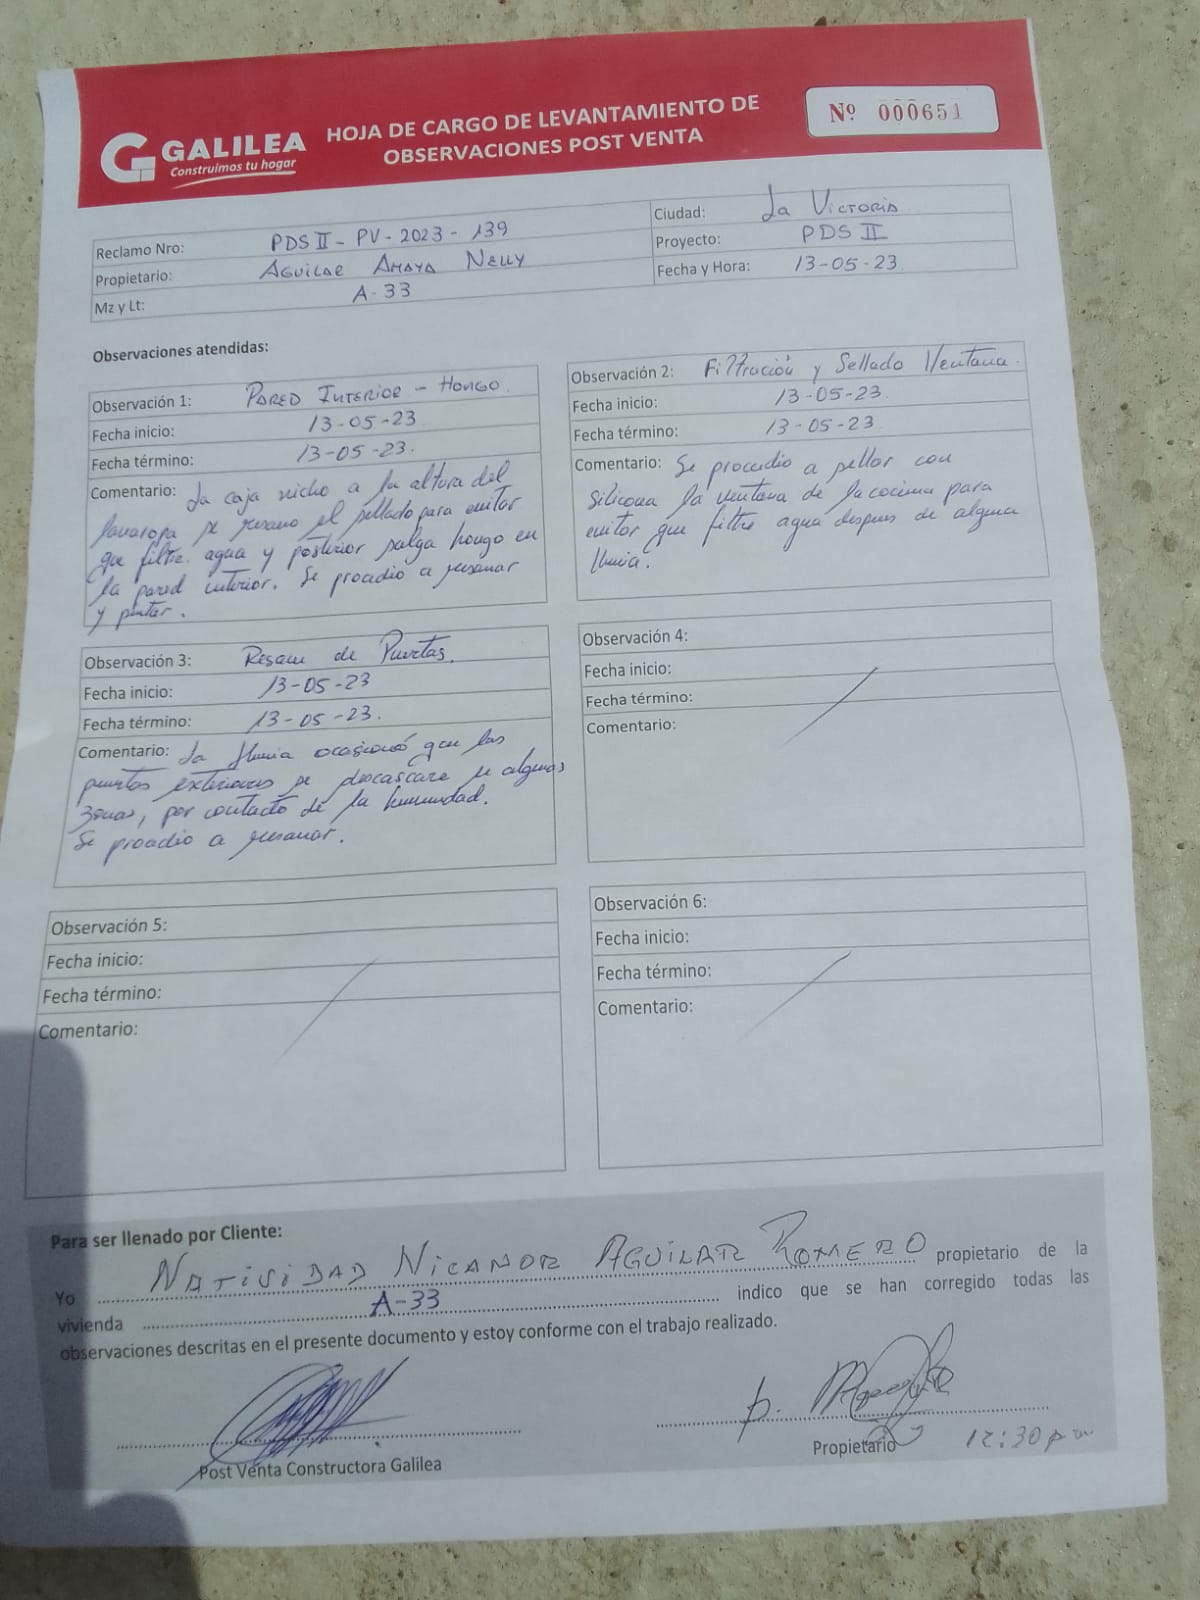 GALILEA
Construimos tu hogar
HOJA DE CARGO DE LEVANTAMIENTO DE
OBSERVACIONES POST VENTA
Nº 000651
Reclamo Nro: PDS II - PV - 2023 - 139
Propietario: Aguilar Amaya Nelly
Mz y Lt: A-33
Ciudad: La Victoria
Proyecto: PDS II
Fecha y Hora: 13-05-23
Observaciones atendidas:
Observación 1: Pared Interior - Hongo.
Fecha inicio: 13-05-23
Fecha término: 13-05-23.
Comentario: La caja nicho a la altura del
lavaropa se resano el sellado para evitar
que filtre agua y posterior salga hongo en
la pared interior. Se procedio a resanar
y pintar.
Observación 2: Filtración y Sellado Ventana.
Fecha inicio: 13-05-23.
Fecha término: 13-05-23.
Comentario: Se procedio a sellar con
silicona la ventana de la cocina para
evitar que filtre agua despues de alguna
lluvia.
Observación 3: Resane de Puertas.
Fecha inicio: 13-05-23
Fecha término: 13-05-23.
Comentario: La lluvia ocasionó que las
puertas exteriores se descascare en algunas
zonas, por contacto de la humedad.
Se procedio a resanar.
Observación 4:
Fecha inicio:
Fecha término:
Comentario:
Observación 5:
Fecha inicio:
Fecha término:
Comentario:
Observación 6:
Fecha inicio:
Fecha término:
Comentario:
Para ser llenado por Cliente:
Yo NATIVIDAD NICANOR AGUILAR ROMERO propietario de la
vivienda A-33 indico que se han corregido todas las
observaciones descritas en el presente documento y estoy conforme con el trabajo realizado.
p.
Post Venta Constructora Galilea
Propietario 12:30 pm